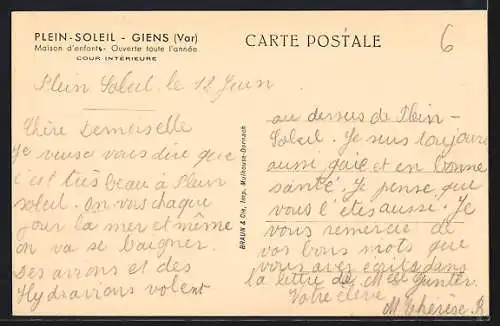 PLEIN-SOLEIL - GIENS (Var)
Maison d'enfants - Ouverte toute l'année
COUR INTÉRIEURE
CARTE POSTALE
6
Plein Soleil le 12 Juin
Chère Demoiselle
Je veuse vous dire que
c'est très beau à Plein
soleil. on vas chaque
jour la mer et même
on va se baigner.
Des avions et des
Hydravions volent
BRAUN & Cie, Imp. Mulhouse-Dornach
au dessus de Plein-
Soleil. Je suis toujours
aussi gaie et en bonne
santé. Je pense que
vous l'êtes aussi. Je
vous remercie de
vos bons mots que
vous avez écrits dans
la lettre de Mlle Gunter.
Votre élève
M Thérèse R